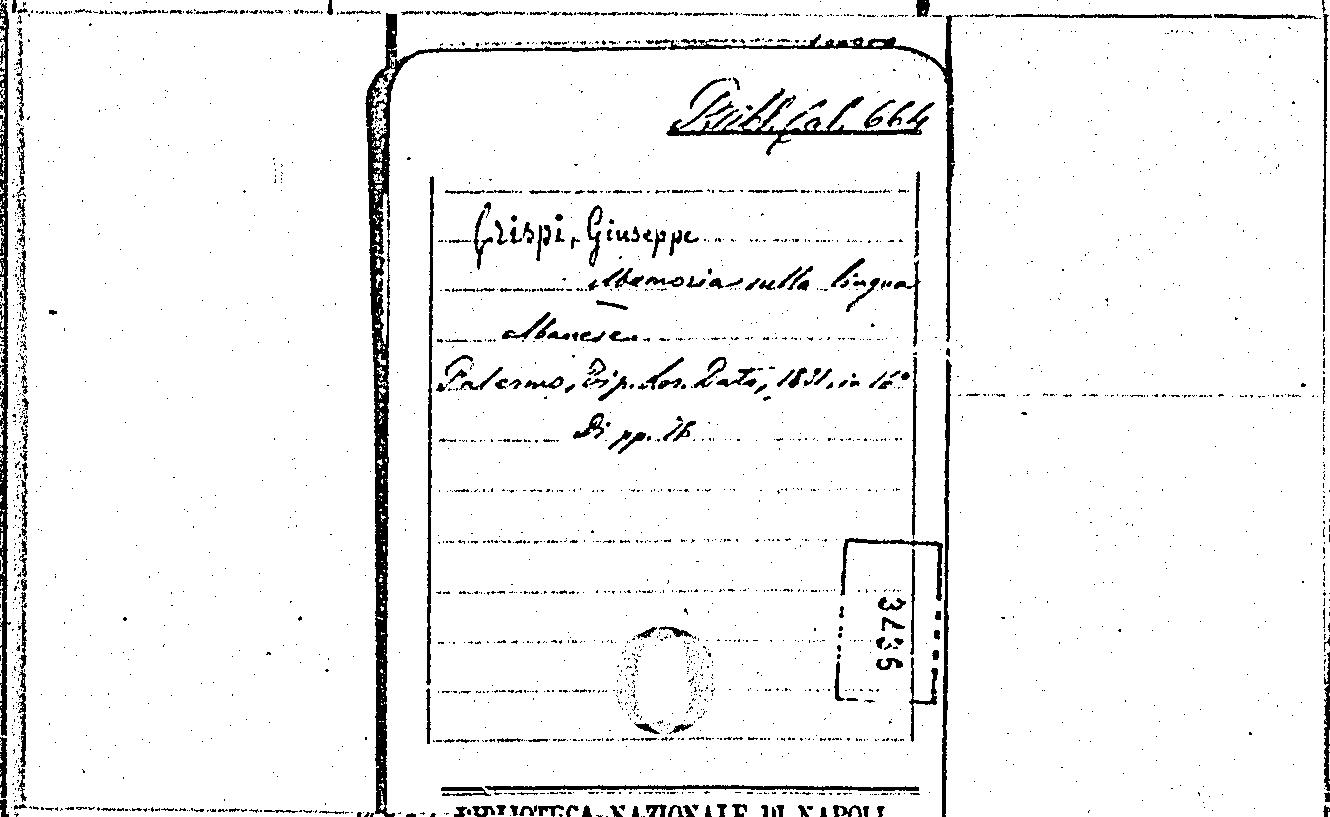 Bibl. Cal. 664
Crispi, Giuseppe
Memoria sulla lingua
Albanese
Palermo, Tip. Lor. Dato, 1831, in 16°
Di pp. 76
3436
BIBLIOTECA NAZIONALE DI NAPOLI